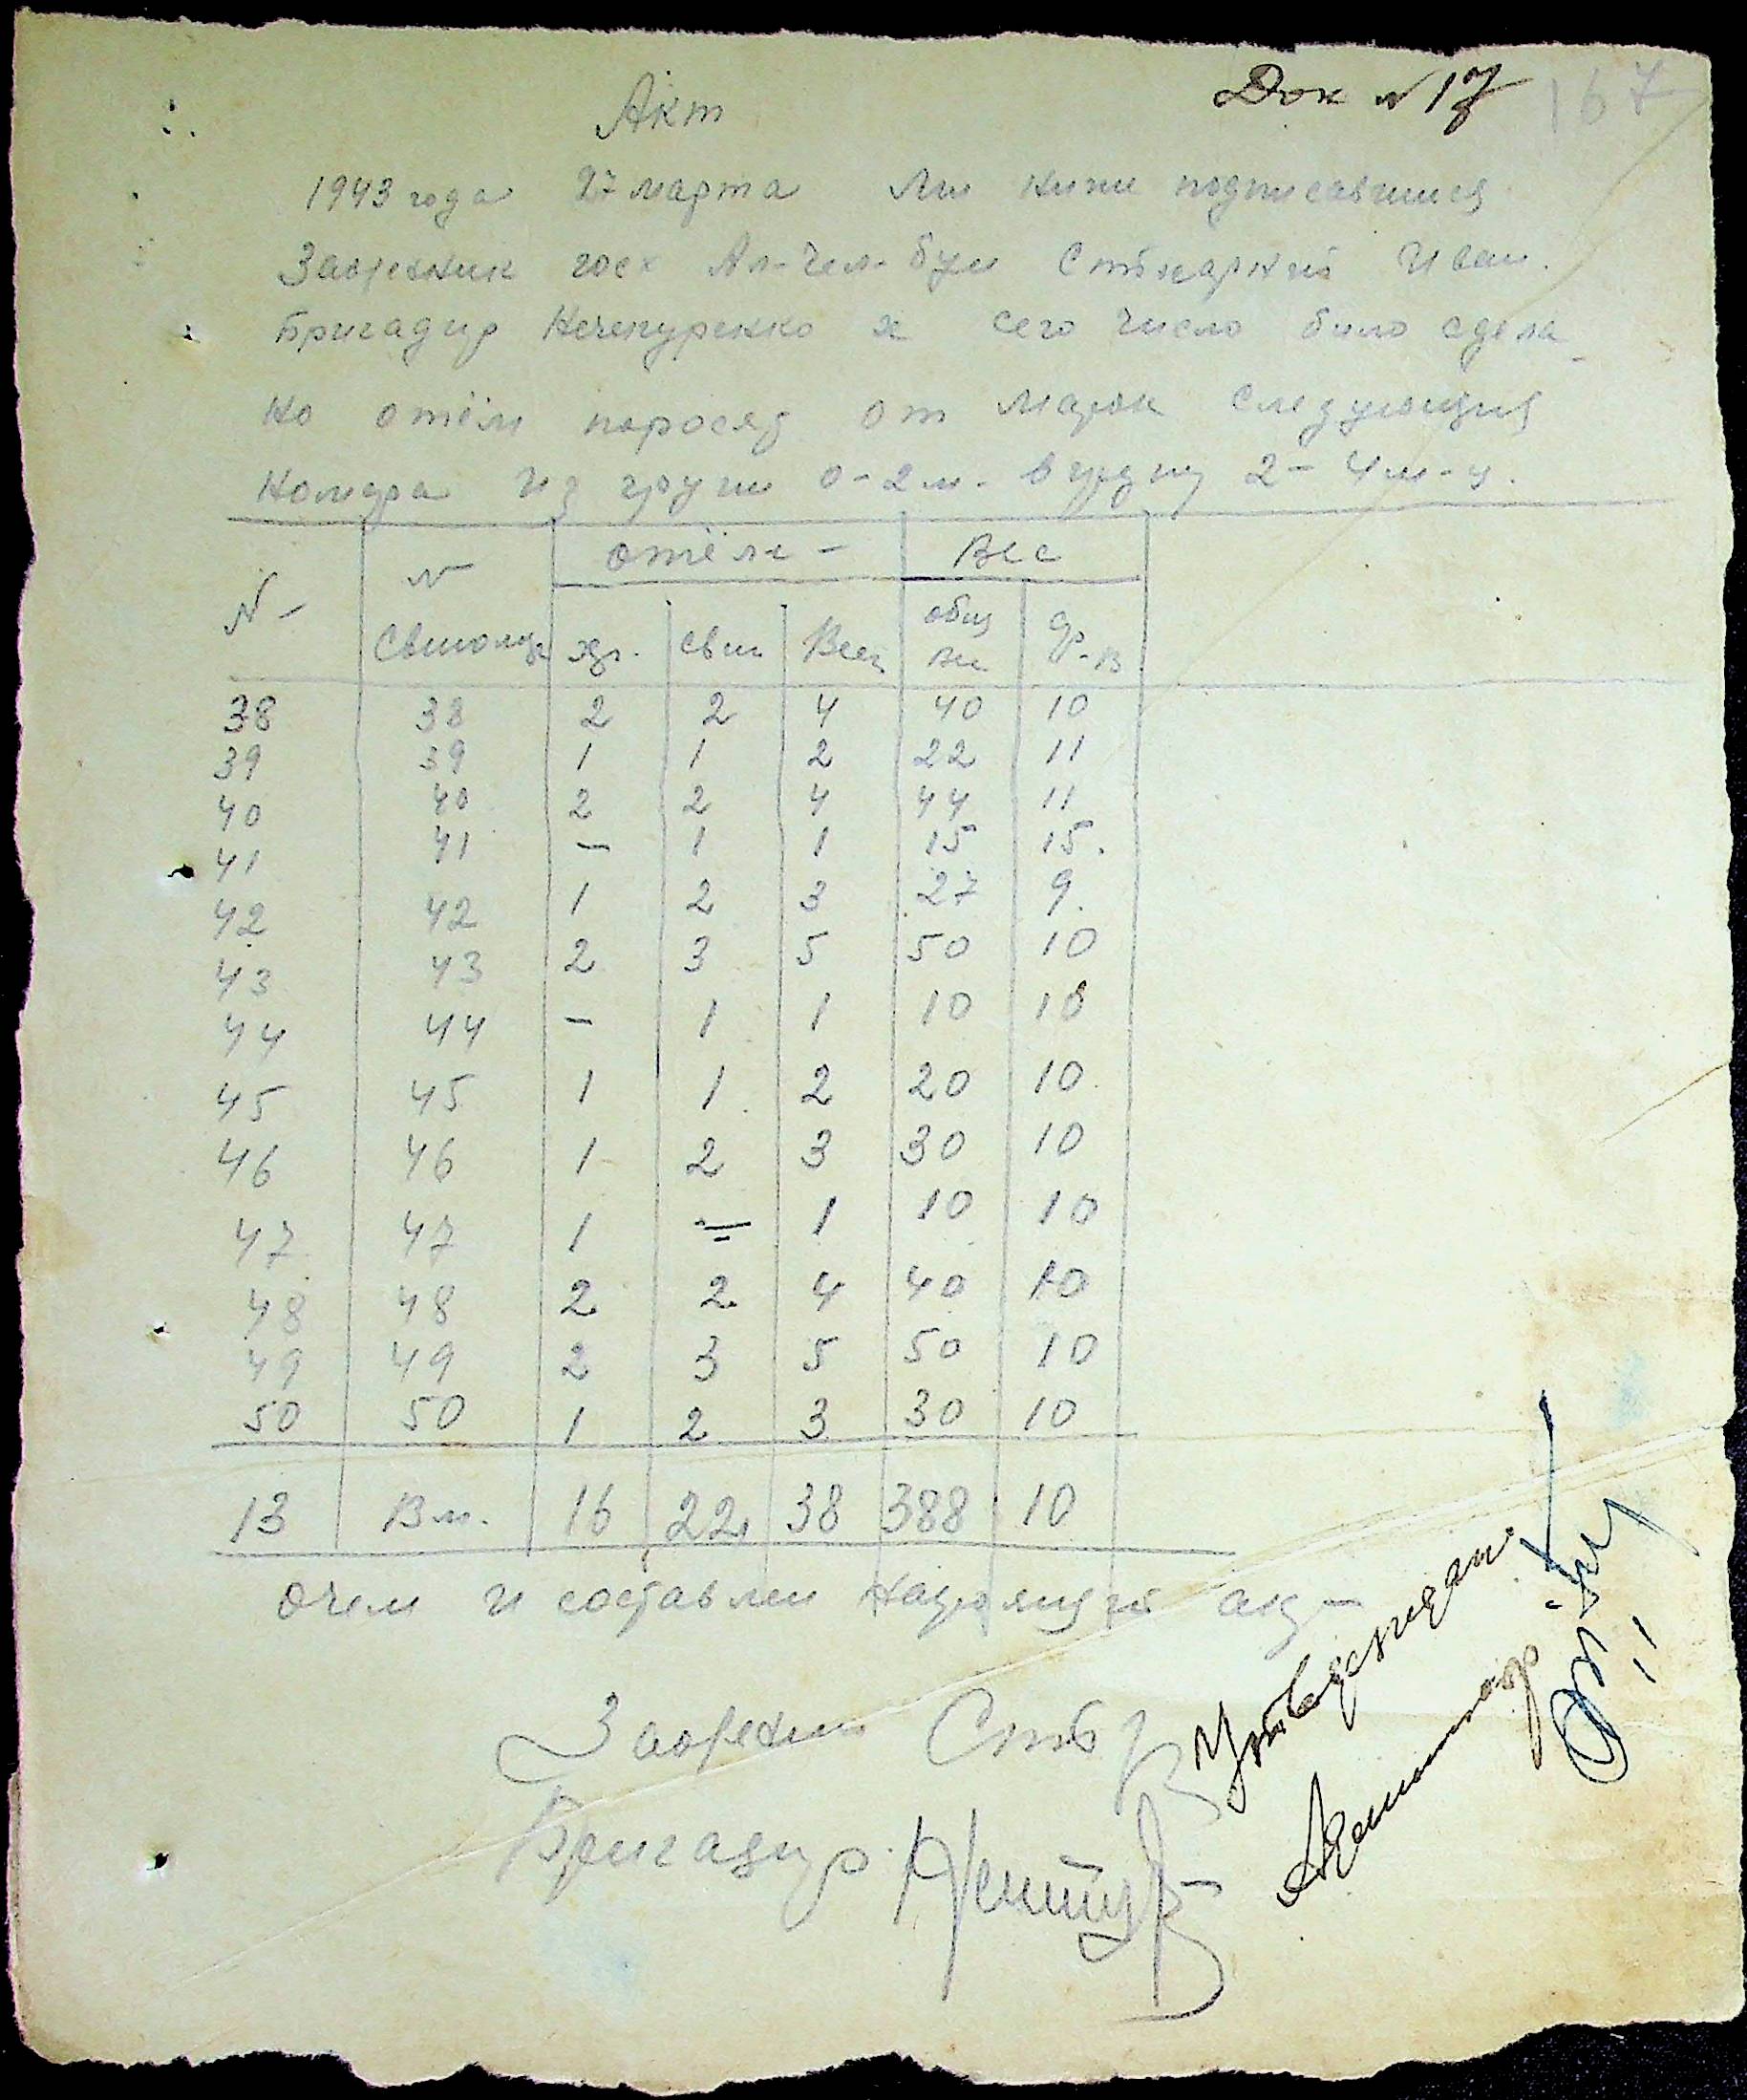 Док №17
167
Акт
1943 года 27 марта Ми ниже подписавшися
госх Ал-Чел- Иван.
Бригадир Нечепуренко сего число било сдела
но отём поросяд от маток следующия
номера из групи 0-2 м. в групу 2-4 м-ц.
отём - Вес
N- N Свиномат хр. свин Всег общ вес ср-в
38 38 2 2 4 40 10
39 39 1 1 2 22 11
40 40 2 2 4 44 11
41 41 — 1 1 15 15.
42 42 1 2 3 27 9.
43 43 2 3 5 50 10
44 44 — 1 1 10 10
45 45 1 1 2 20 10
46 46 1 2 3 30 10
47 47 1 — 1 10 10
48 48 2 2 4 40 10
49 49 2 3 5 50 10
50 50 1 2 3 30 10
13 16 22 38 388 10
Очем и составлен настоящий акт
Бригадир
Утверждаю